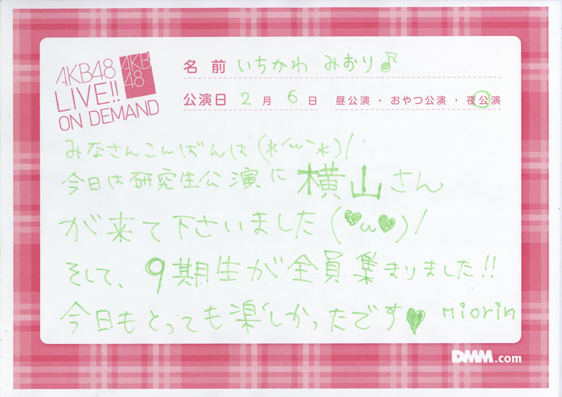 AKB48
LIVE!!
ON DEMAND
AKB
48
名前 いちかわ みおり♪
公演日 2 月 6 日 昼公演・おやつ公演・夜公演
みなさんこんばんは(*´ω`*)/
今日は研究生公演に横山さん
が来て下さいました(♥ω♥)/
そして、9期生が全員集まりました!!
今日もとっても楽しかったです♥ Miorin
DMM.com